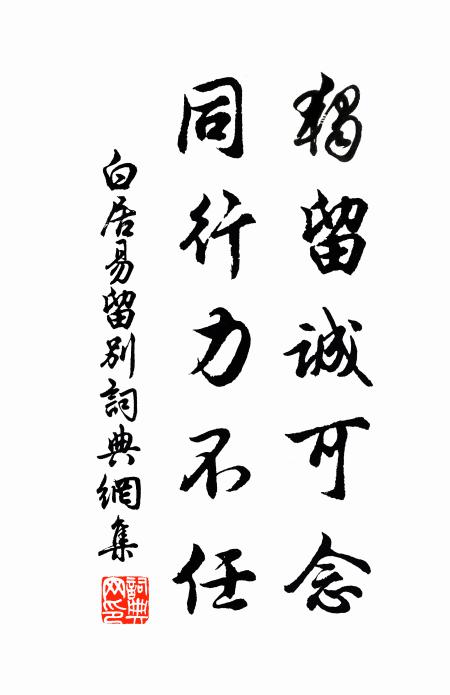 獨留誠可念
同行力不任
白居易留別詞典網集
詞典網印